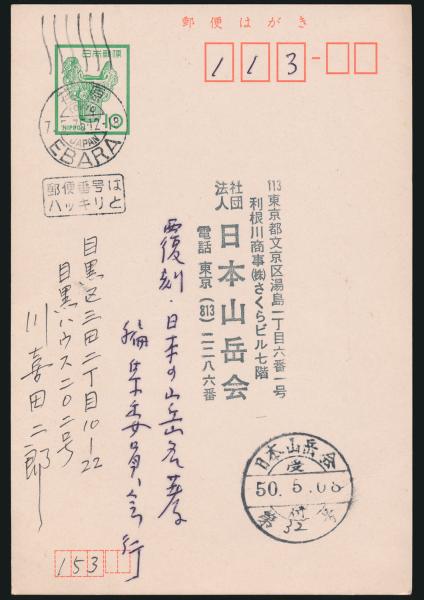 郵便はがき
113
日本郵便
NIPPON
10
EBARA
JAPAN
郵便番号は
ハッキリと
113 東京都文京区湯島二丁目六番一号
利根川商事(株)さくらビル七階
社団法人 日本山岳会
電話 東京(813)二二八六番
覆刻・日本の山岳名著
編集委員会行
目黒区三田二丁目10-22
目黒ハウス二〇二号
川喜田二郎
日本山岳会
受
50.5.08
付
32
153